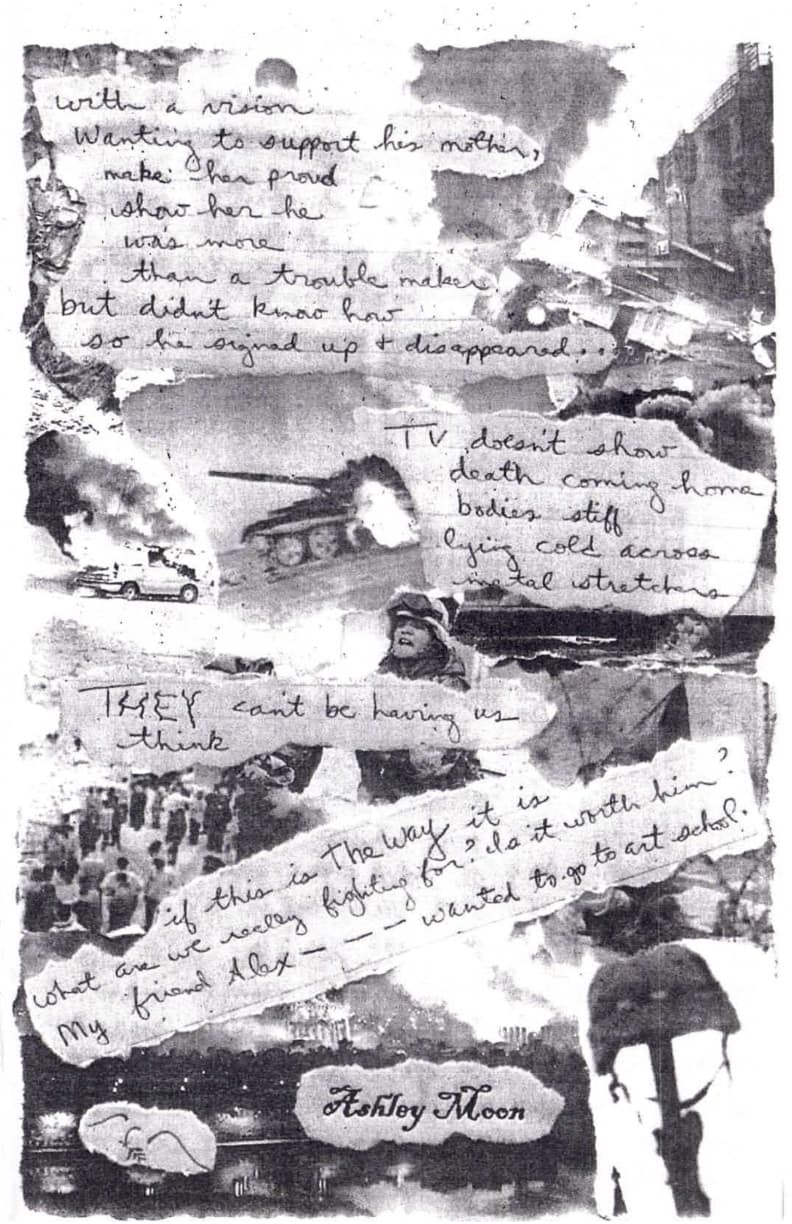 with a vision
Wanting to support his mother,
make her proud
show her he
was more
than a trouble maker
but didn't know how
so he signed up + disappeared...
TV doesn't show
death coming home
bodies stiff
lying cold across
metal stretchers
THEY can't be having us
think
if this is The Way it is
what are we really fighting for? Is it worth him?
My friend Alex – – – – wanted to go to art school.
Ashley Moon